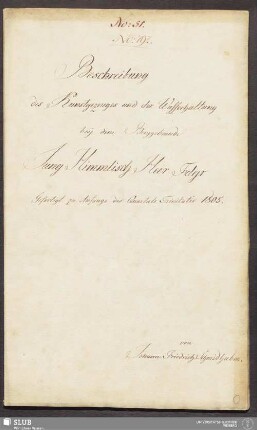 No: 51.
No: 192.
Beschreibung
des Kunstgezeuges und der Wasserhaltung
bey dem Berggebäude
Jung Himmlisch Heer Fdgr
Gefertigt zu Anfange des Quartals Trinitatis 1805.
von
Johann Friedrich
SLUB